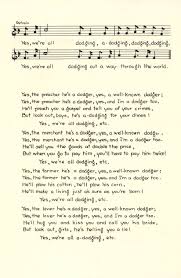 Refrain
Yes, we're all dodging, a-dodging, dodging, dodging,
Yes, we're all dodging out a way through the world.
Yes, the preacher he's a dodger, yes, a well-known dodger;
Yes, the preacher he's a dodger, yes, and I'm a dodger too.
He'll preach you a gospel and tell you of your crimes,
But look out, boys, he's a-dodging for your dimes!
Yes, we're all dodging, etc.
Yes, the merchant he's a dodger, yes, a well-known dodger;
Yes, the merchant he's a dodger, yes, and I'm a dodger too.
He'll sell you the goods at double the price,
But when you go to pay him you'll have to pay him twice!
Yes, we're all dodging, etc.
Yes, the farmer he's a dodger, yes, a well-known dodger;
Yes, the farmer he's a dodger, yes, and I'm a dodger too.
He'll plow his cotton, he'll plow his corn,
He'll make a living just as sure as you're born!
Yes, we're all a-dodging, etc.
Yes, the lover he's a dodger, yes, a well-known dodger;
Yes, the lover he's a dodger, yes, and I'm a dodger too.
He'll hug you and kiss you and call you his bride,
But look out, girls, he's telling you a lie!
Yes, we're all a-dodging, etc.